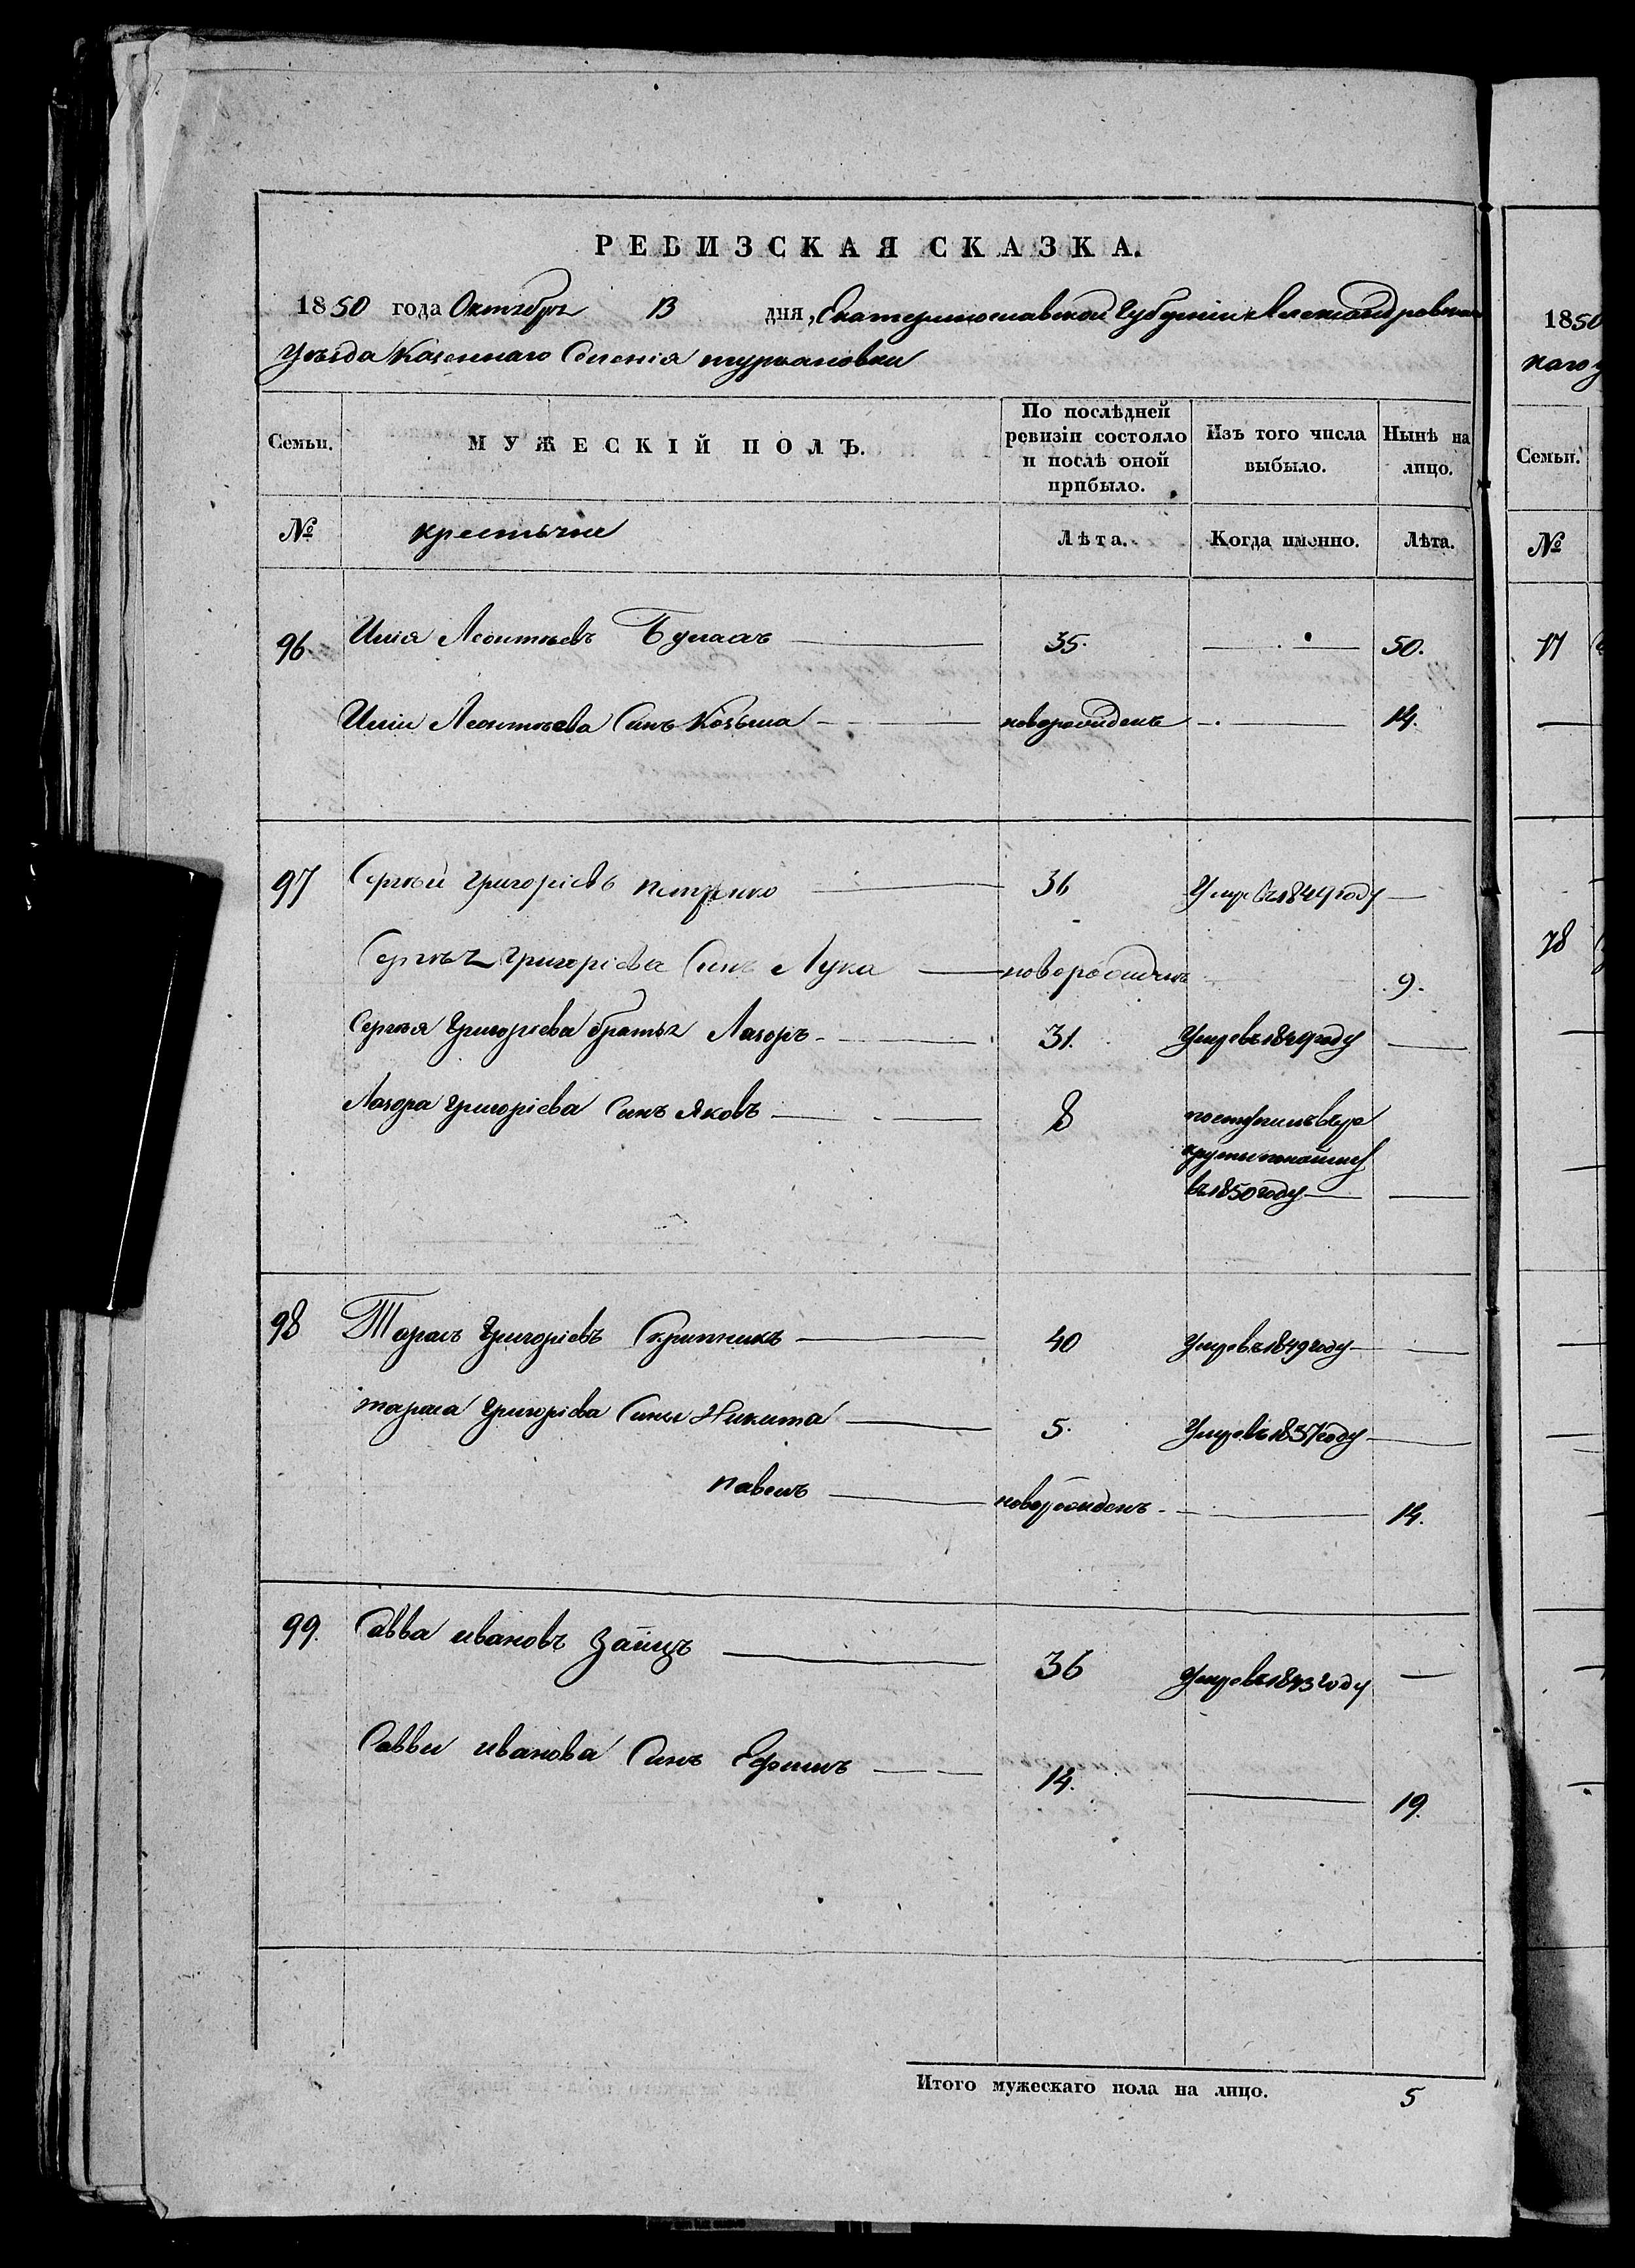 РЕВИЗСКАЯ СКАЗКА.
1850 года Октября 13 дня, Екатеринославской Губерніи Александровскаго
Уѣзда Казеннаго Селенія
Семьи. МУЖЕСКІЙ ПОЛЪ. По послѣдней ревизіи состояло и послѣ оной прибыло. Изъ того числа выбыло. Нынѣ на лицо.
№ крестьяне Лѣта. Когда именно. Лѣта.
96 Илія Леонтьевъ 35. 50.
Иліи Леонтьева Синъ Козьма новорожденъ 14.
97 Сергѣй Григоріевъ Петренко 36 Умре въ 1849 году
Григоріева Синъ Лука новорожденъ 9.
Сергѣя Григоріева братъ Лазоръ 31. Умре въ 1849 году
Лазора Григоріева Синъ Яковъ 8 поступилъ въ ре
въ 1850 году
98 Тарасъ Григоріевъ Скрипникъ 40 Умре въ 1849 году
тараса Григоріева Сины Никита 5. Умре въ 1837 году
павелъ новорожденъ 14.
99. Савва ивановъ Заицъ 36 Умре въ 1843 году
Саввы иванова Синъ Ефимъ 14. 19.
Итого мужескаго пола на лицо. 5
1850
каго у
Семьи.
№
77
78